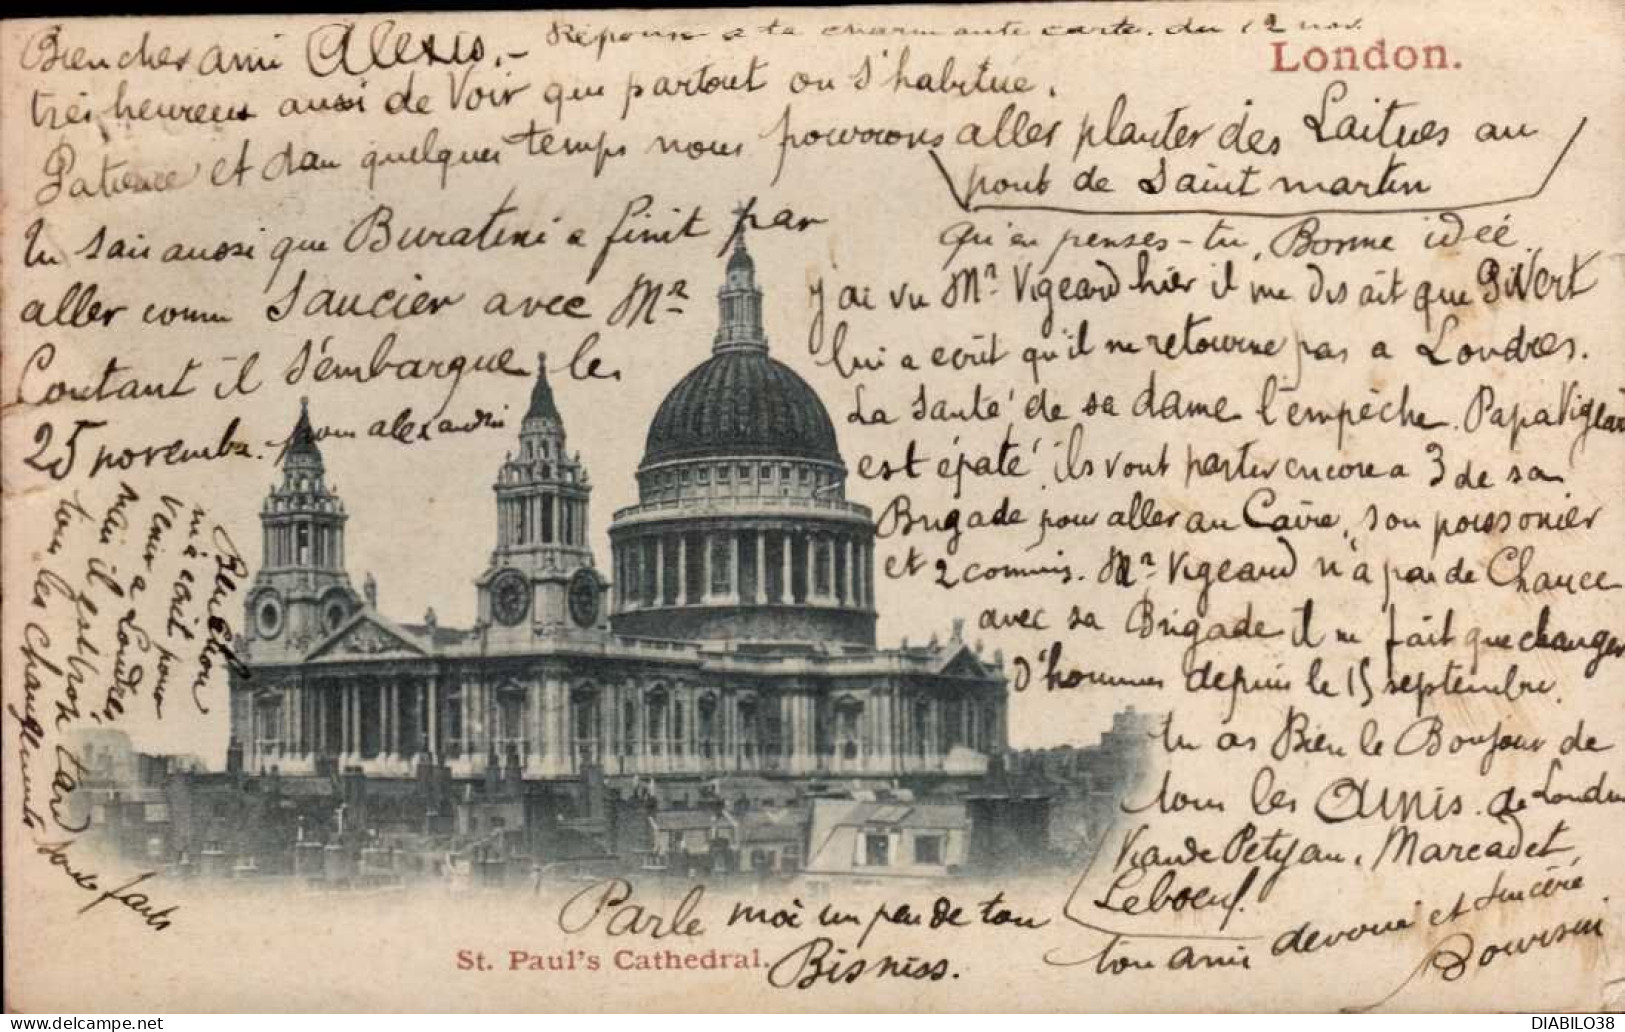 Réponse a ta charmante carte. du 12 nov.
London.
Bien cher ami Alexis, -
très heureux aussi de Voir que partout on s'habitue.
Patience et dan quelques temps nous pouvrons aller planter des Laitues au
pont de Saint martin
tu sais aussi que Buratini a finit par
aller comm Saucier avec Mr
Coutant il s'embarque le
25 novembre. pour alexandrie
qu'en penses-tu, Bonne idée.
j'ai vu Mr Vigeard hier il me disait que PiVert
lui a ecrit qu'il ne retourne pas a Londres.
La Santé de sa dame l'empèche. Papa Vigeard
est épaté, ils vont partir encore a 3 de sa
Brigade pour aller au Caire, son poissonier
et 2 commis. Mr Vigeard n'a pas de Chance
avec sa Brigade il ne fait que changer
d'hommes depuis le 15 septembre.
tu as Bien le Bonjour de
tous les Amis de Londres
Viande Petijan, Marcadet,
Leboeuf.
ton ami devoué et sincére
Bluchon
m'a écrit pour
Venir a Londres
mais il est trop tard
tous les Changements sont faits
Parle moi un peu de ton
Bisniss.
St. Paul's Cathedral.
DIABILO38